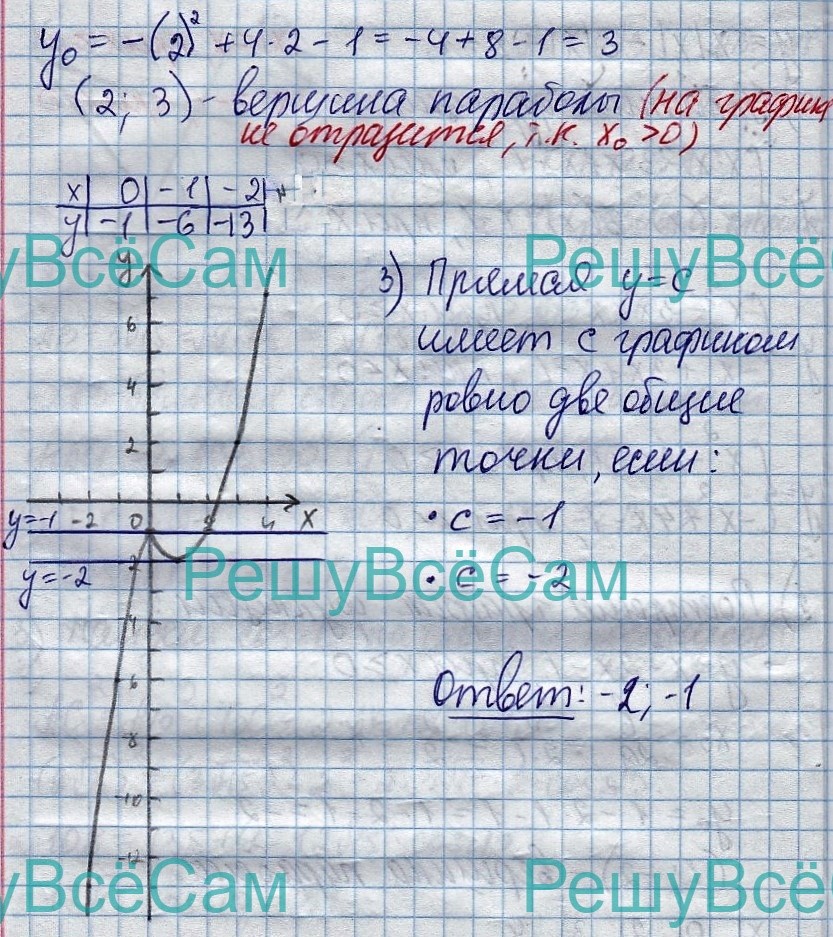 y₀ = -(2)² + 4·2 - 1 = -4 + 8 - 1 = 3
(2; 3) - вершина параболы (на график
не отразится, т.к. x₀ > 0)
x | 0 | -1 | -2 |
y | -1 | -6 | -13 |
РешуВсёСам
уВсёСам
РешуВсё
y
6
4
2
y=-1
-2
0
2
4
x
y=-2
-2
-4
-6
-8
-10
-12
3) Прямая y=c
имеет с графиком
ровно две общие
точки, если:
• c = -1
• c = -2
Ответ: -2; -1
уВсёСам
РешуВсё